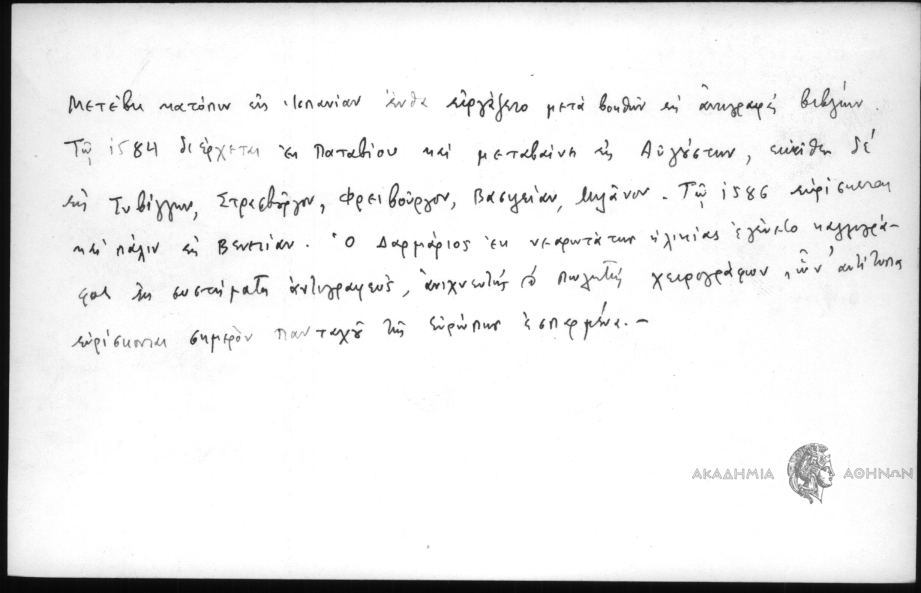 Μετέβη κατόπιν εἰς Ἱσπανίαν ἔνθα εἰργάζετο μετὰ βοηθῶν εἰς ἀντιγραφὰς βιβλίων.
Τῷ 1584 διέρχεται ἐκ Παταβίου καὶ μεταβαίνει εἰς Αὐγούσταν, ἐκεῖθεν δὲ
εἰς Τυβίγγην, Στρασβοῦργον, Φρειβοῦργον, Βασιλείαν, Μιλᾶνον. Τῷ 1586 εὑρίσκεται
καὶ πάλιν εἰς Βενετίαν. Ὁ Δαρμάριος ἐκ νεαρωτάτης ἡλικίας ἐγένετο καλλιγρά-
φος εἰς συστήματα ἀντιγραφεύς, ἀνιχνευτής καὶ πωλητὴς χειρογράφων, ὧν ἀντίτυπα
εὑρίσκονται σήμερον πανταχοῦ τῆς Εὐρώπης ἐσπαρμένα.—
ΑΚΑΔΗΜΙΑ ΑΘΗΝΩΝ